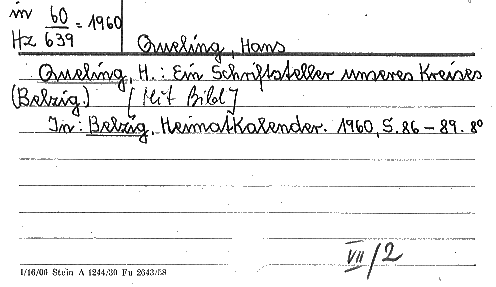 in 60/639 = 1960
Hz
Queling, Hans
Queling, H.: Ein Schriftsteller unseres Kreises
(Belzig.) [Mit Bild]
In: Belzig, Heimatkalender. 1960, S. 86 – 89. 8°
VII/2
1/16/00 Stein A 1244/30 Fu 2643/58